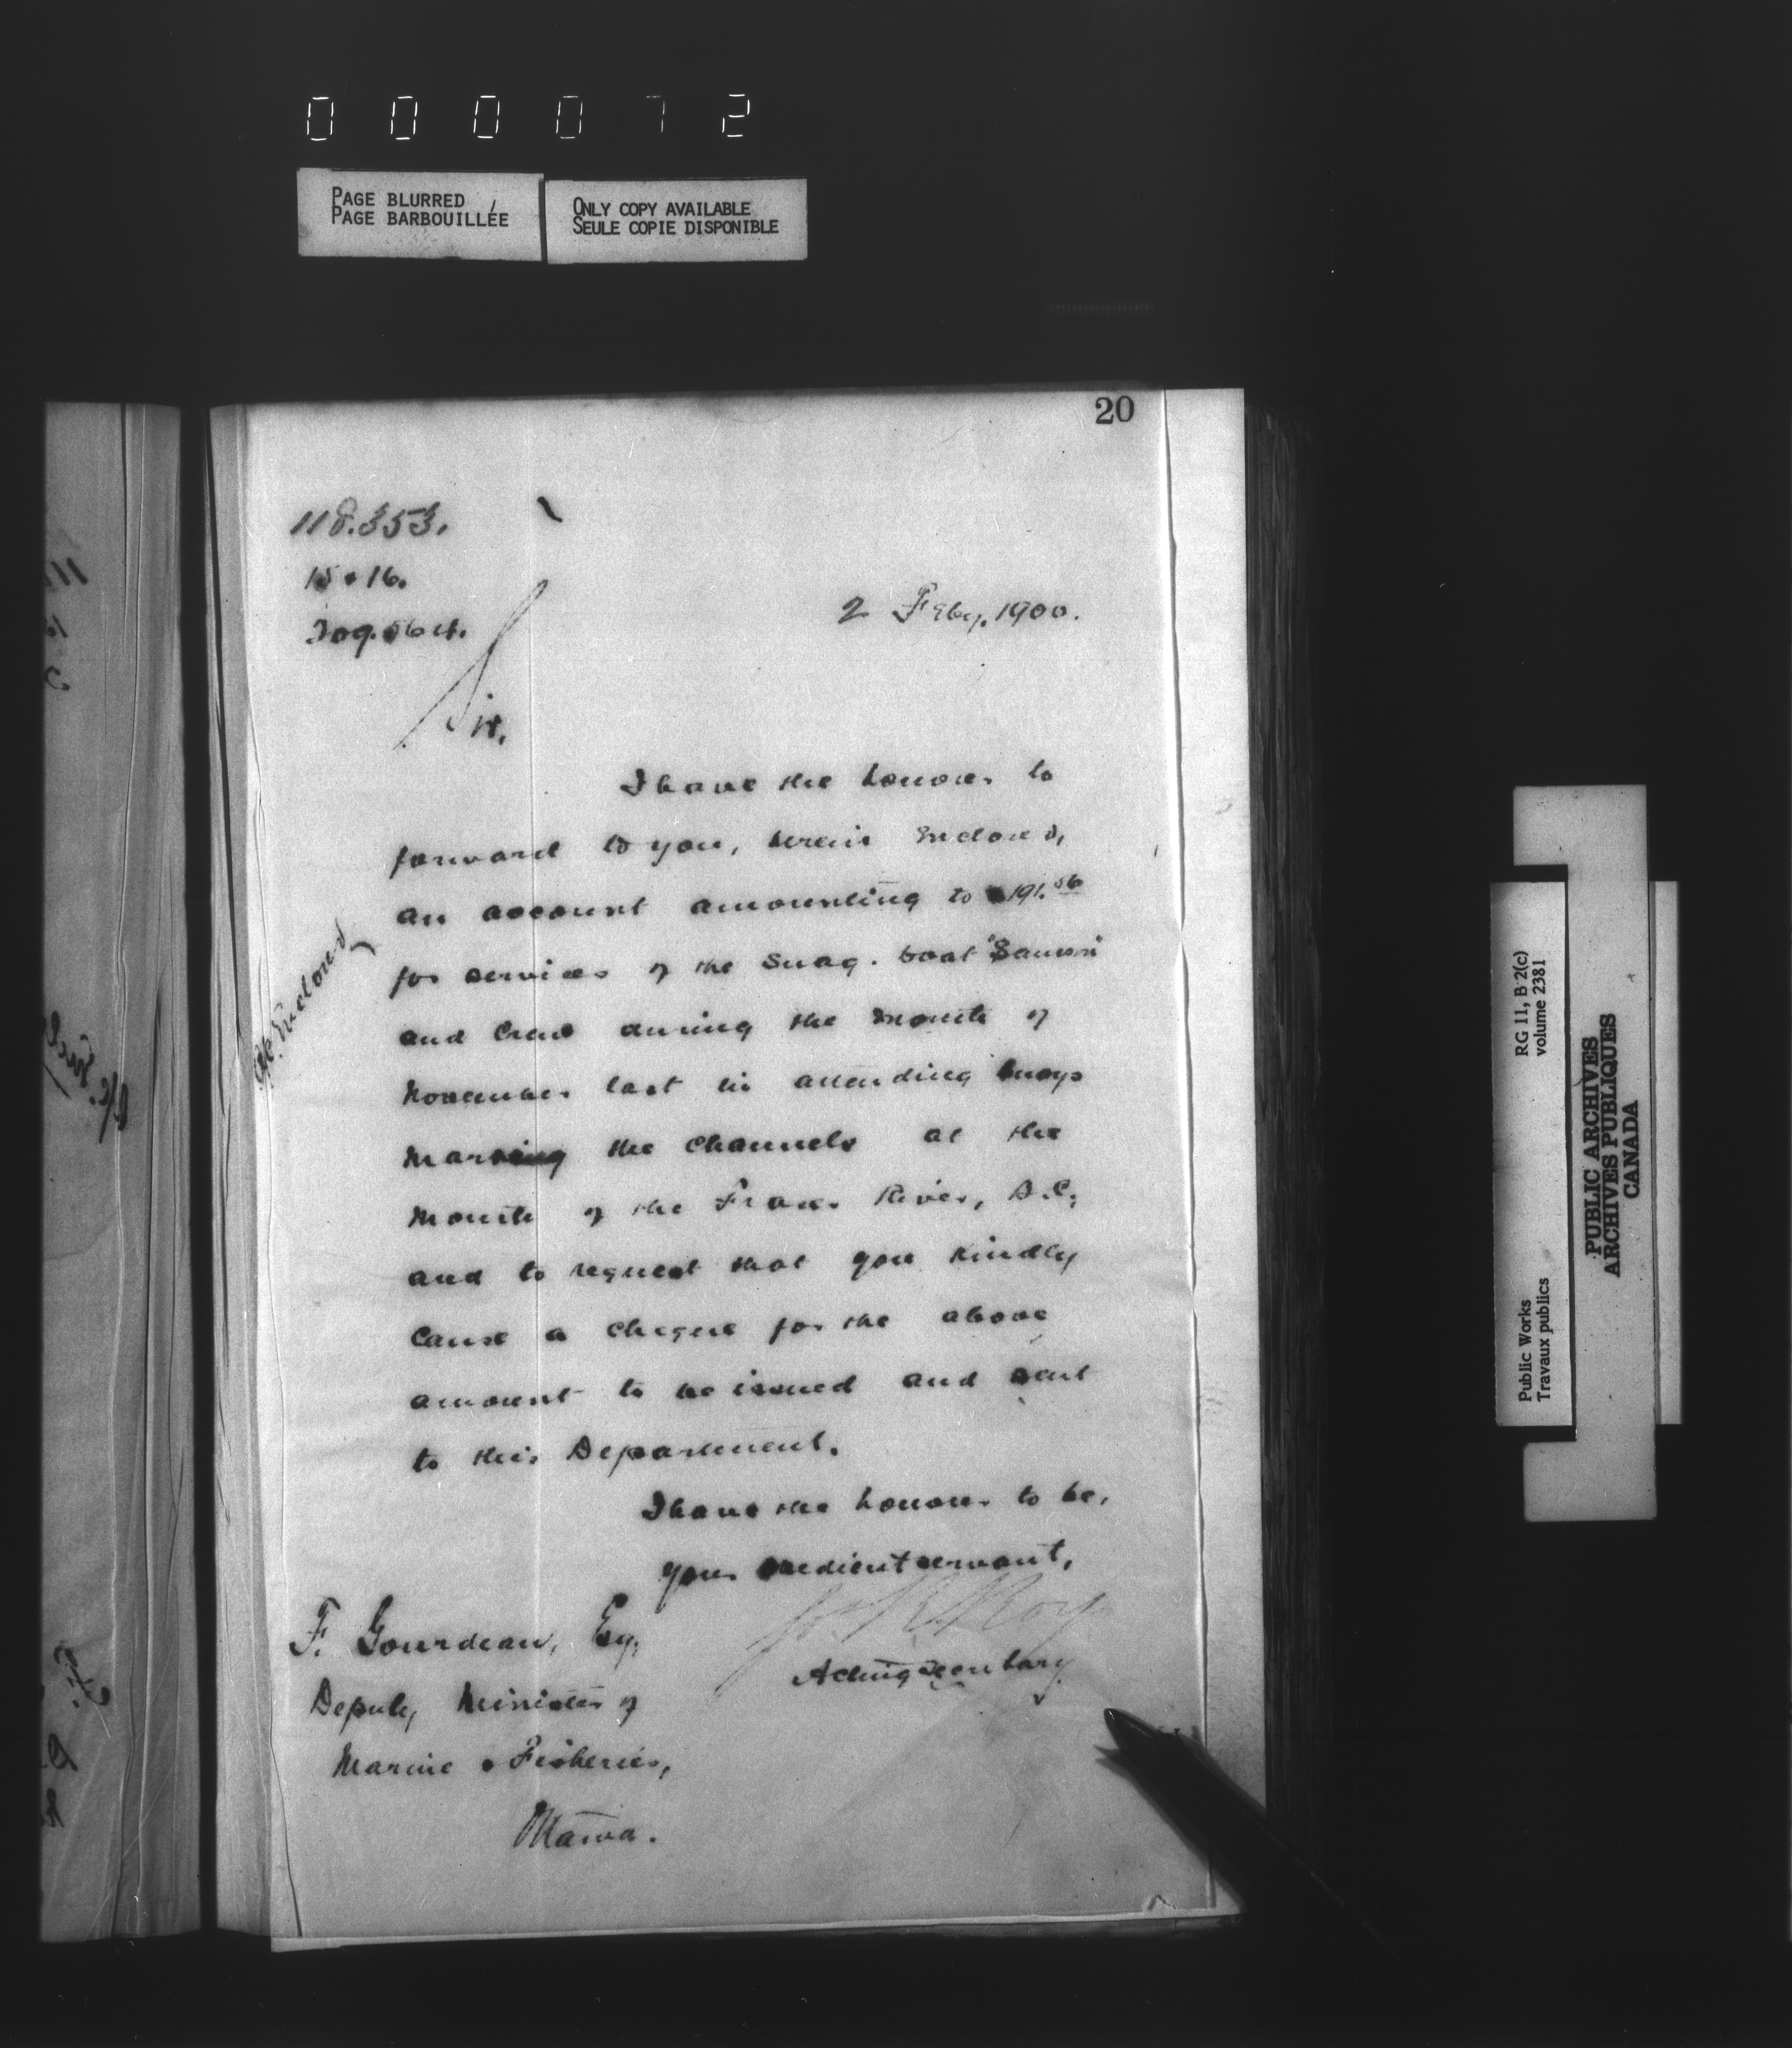 000072
PAGE BLURRED
PAGE BARBOUILLÉE
ONLY COPY AVAILABLE
SEULE COPIE DISPONIBLE
20
118.353.
15 & 16.
2 Feby. 1900.
Sir,
I have the honour to
forward to you, herein Enclosed,
an account amounting to $191.56
for services of the Snag. boat "Samson"
and Crew during the month of
November last in attending buoys
marking the Channels at the
Mouth of the Fraser River, B.C.,
and to request that you kindly
Cause a cheque for the above
amount to be issued and sent
to this Department.
I have the honour to be,
your obedient servant,
Roy
Acting Secretary
F. Gourdeau, Esq.
Deputy Minister of
Marine & Fisheries,
Ottawa.
Enclosed
RG 11, B 2(c)
volume 2381
Public Works
Travaux publics
PUBLIC ARCHIVES
ARCHIVES PUBLIQUES
CANADA